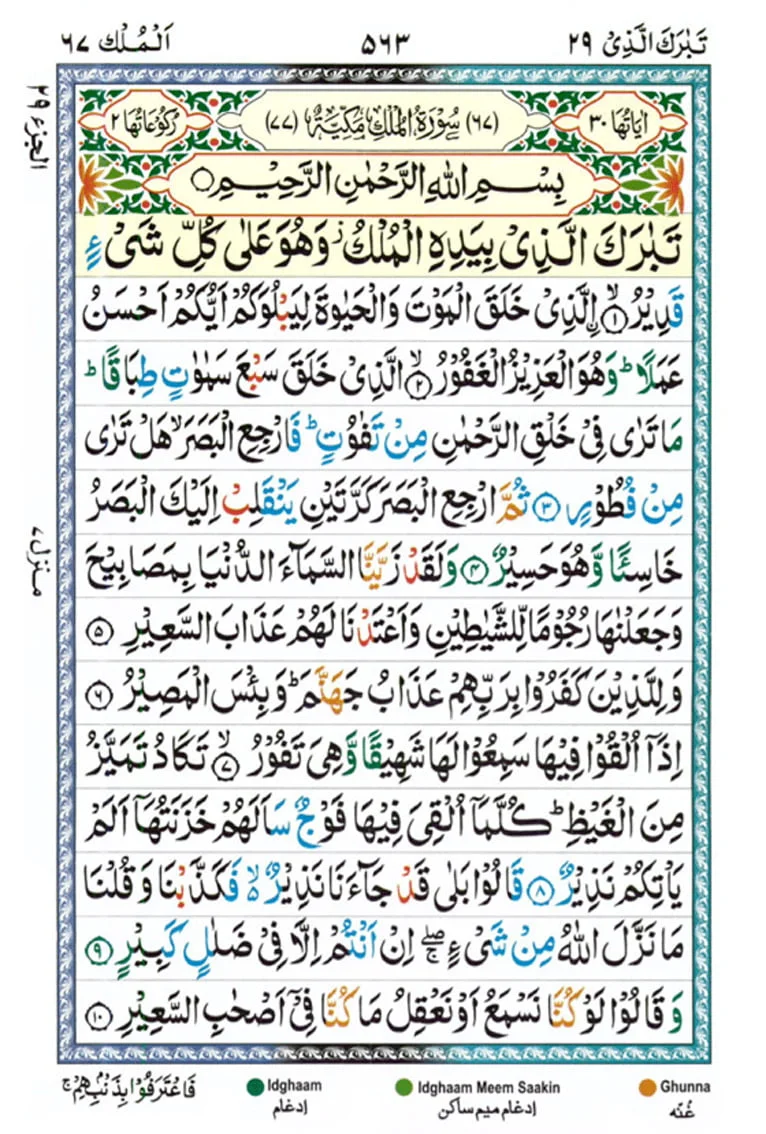 تَبٰرَكَ الَّذِىْ ٢٩
٥٦٣
اَلْمُلْك ٦٧
الجزء ٢٩
اٰيَاتُهَا ٣٠
(٦٧) سُوْرَةُ الْمُلْكِ مَكِّيَّةٌ (٧٧)
رُكُوْعَاتُهَا ٢
بِسْمِ اللهِ الرَّحْمٰنِ الرَّحِيْمِ ۝
تَبٰرَكَ الَّذِىْ بِيَدِهِ الْمُلْكُ ز وَهُوَ عَلٰى كُلِّ شَىْءٍ
قَدِيْرُ ۙ﴿١﴾ ۨالَّذِىْ خَلَقَ الْمَوْتَ وَالْحَيٰوةَ لِيَبْلُوَكُمْ اَيُّكُمْ اَحْسَنُ
عَمَلًا ؕ وَهُوَ الْعَزِيْزُ الْغَفُوْرُ ۙ﴿٢﴾ الَّذِىْ خَلَقَ سَبْعَ سَمٰوٰتٍ طِبَاقًا ؕ
مَا تَرٰى فِىْ خَلْقِ الرَّحْمٰنِ مِنْ تَفٰوُتٍ ؕ فَارْجِعِ الْبَصَرَ ۙ هَلْ تَرٰى
مِنْ فُطُوْرٍ ﴿٣﴾ ثُمَّ ارْجِعِ الْبَصَرَ كَرَّتَيْنِ يَنْقَلِبْ اِلَيْكَ الْبَصَرُ
خَاسِئًا وَّهُوَ حَسِيْرٌ ﴿٤﴾ وَلَقَدْ زَيَّنَّا السَّمَآءَ الدُّنْيَا بِمَصَابِيْحَ
وَجَعَلْنٰهَا رُجُوْمًا لِّلشَّيٰطِيْنِ وَاَعْتَدْنَا لَهُمْ عَذَابَ السَّعِيْرِ ﴿٥﴾
وَلِلَّذِيْنَ كَفَرُوْا بِرَبِّهِمْ عَذَابُ جَهَنَّمَ ؕ وَبِئْسَ الْمَصِيْرُ ﴿٦﴾
اِذَآ اُلْقُوْا فِيْهَا سَمِعُوْا لَهَا شَهِيْقًا وَّهِىَ تَفُوْرُ ۙ﴿٧﴾ تَكَادُ تَمَيَّزُ
مِنَ الْغَيْظِ ؕ كُلَّمَآ اُلْقِىَ فِيْهَا فَوْجٌ سَاَلَهُمْ خَزَنَتُهَآ اَلَمْ
يَاْتِكُمْ نَذِيْرٌ ﴿٨﴾ قَالُوْا بَلٰى قَدْ جَآءَنَا نَذِيْرٌ ۙ۬ فَكَذَّبْنَا وَقُلْنَا
مَا نَزَّلَ اللهُ مِنْ شَىْءٍ ۖۚ اِنْ اَنْتُمْ اِلَّا فِىْ ضَلٰلٍ كَبِيْرٍ ﴿٩﴾
وَقَالُوْا لَوْ كُنَّا نَسْمَعُ اَوْ نَعْقِلُ مَا كُنَّا فِىْٓ اَصْحٰبِ السَّعِيْرِ ﴿١٠﴾
منزل ٧
Ghunna
غُنّه
Idghaam Meem Saakin
ادغام میم ساکن
Idghaam
ادغام
فَاعْتَرَفُوْا بِذَنْۢبِهِمْ ۚ